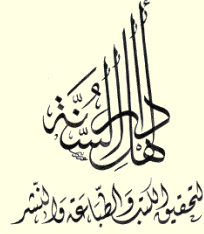 دار أهل السُّنَّة
لتحقيق الكتب والطِّباعة والنّشر